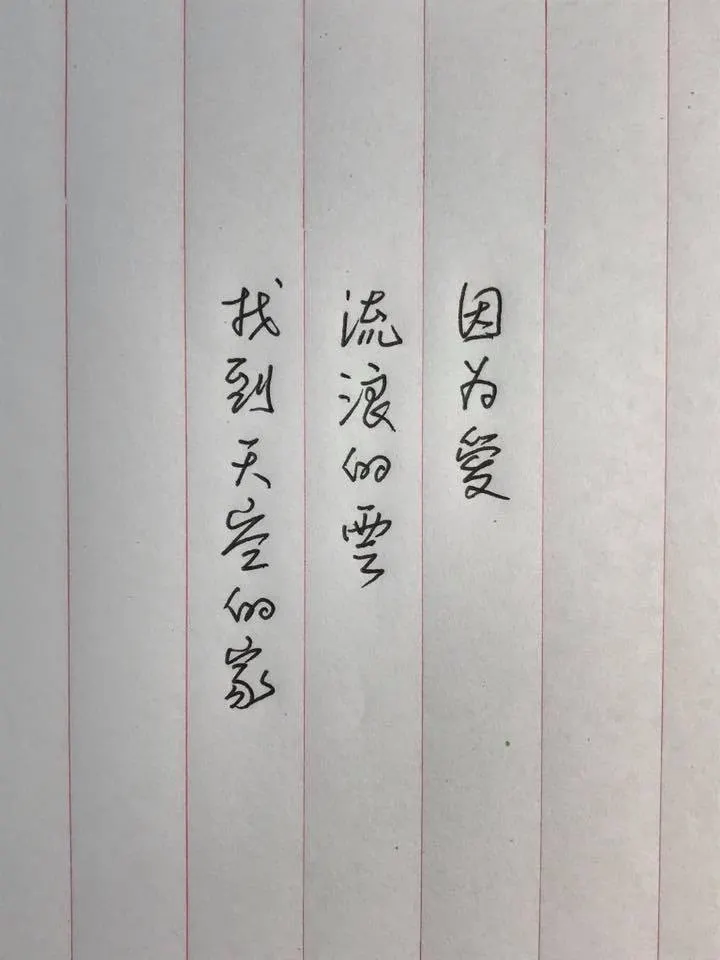 因为爱
流浪的雲
找到天空的家